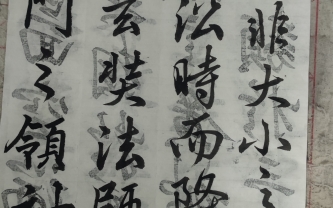 非大小之
沿時而隆
玄奘法師
門之領袖